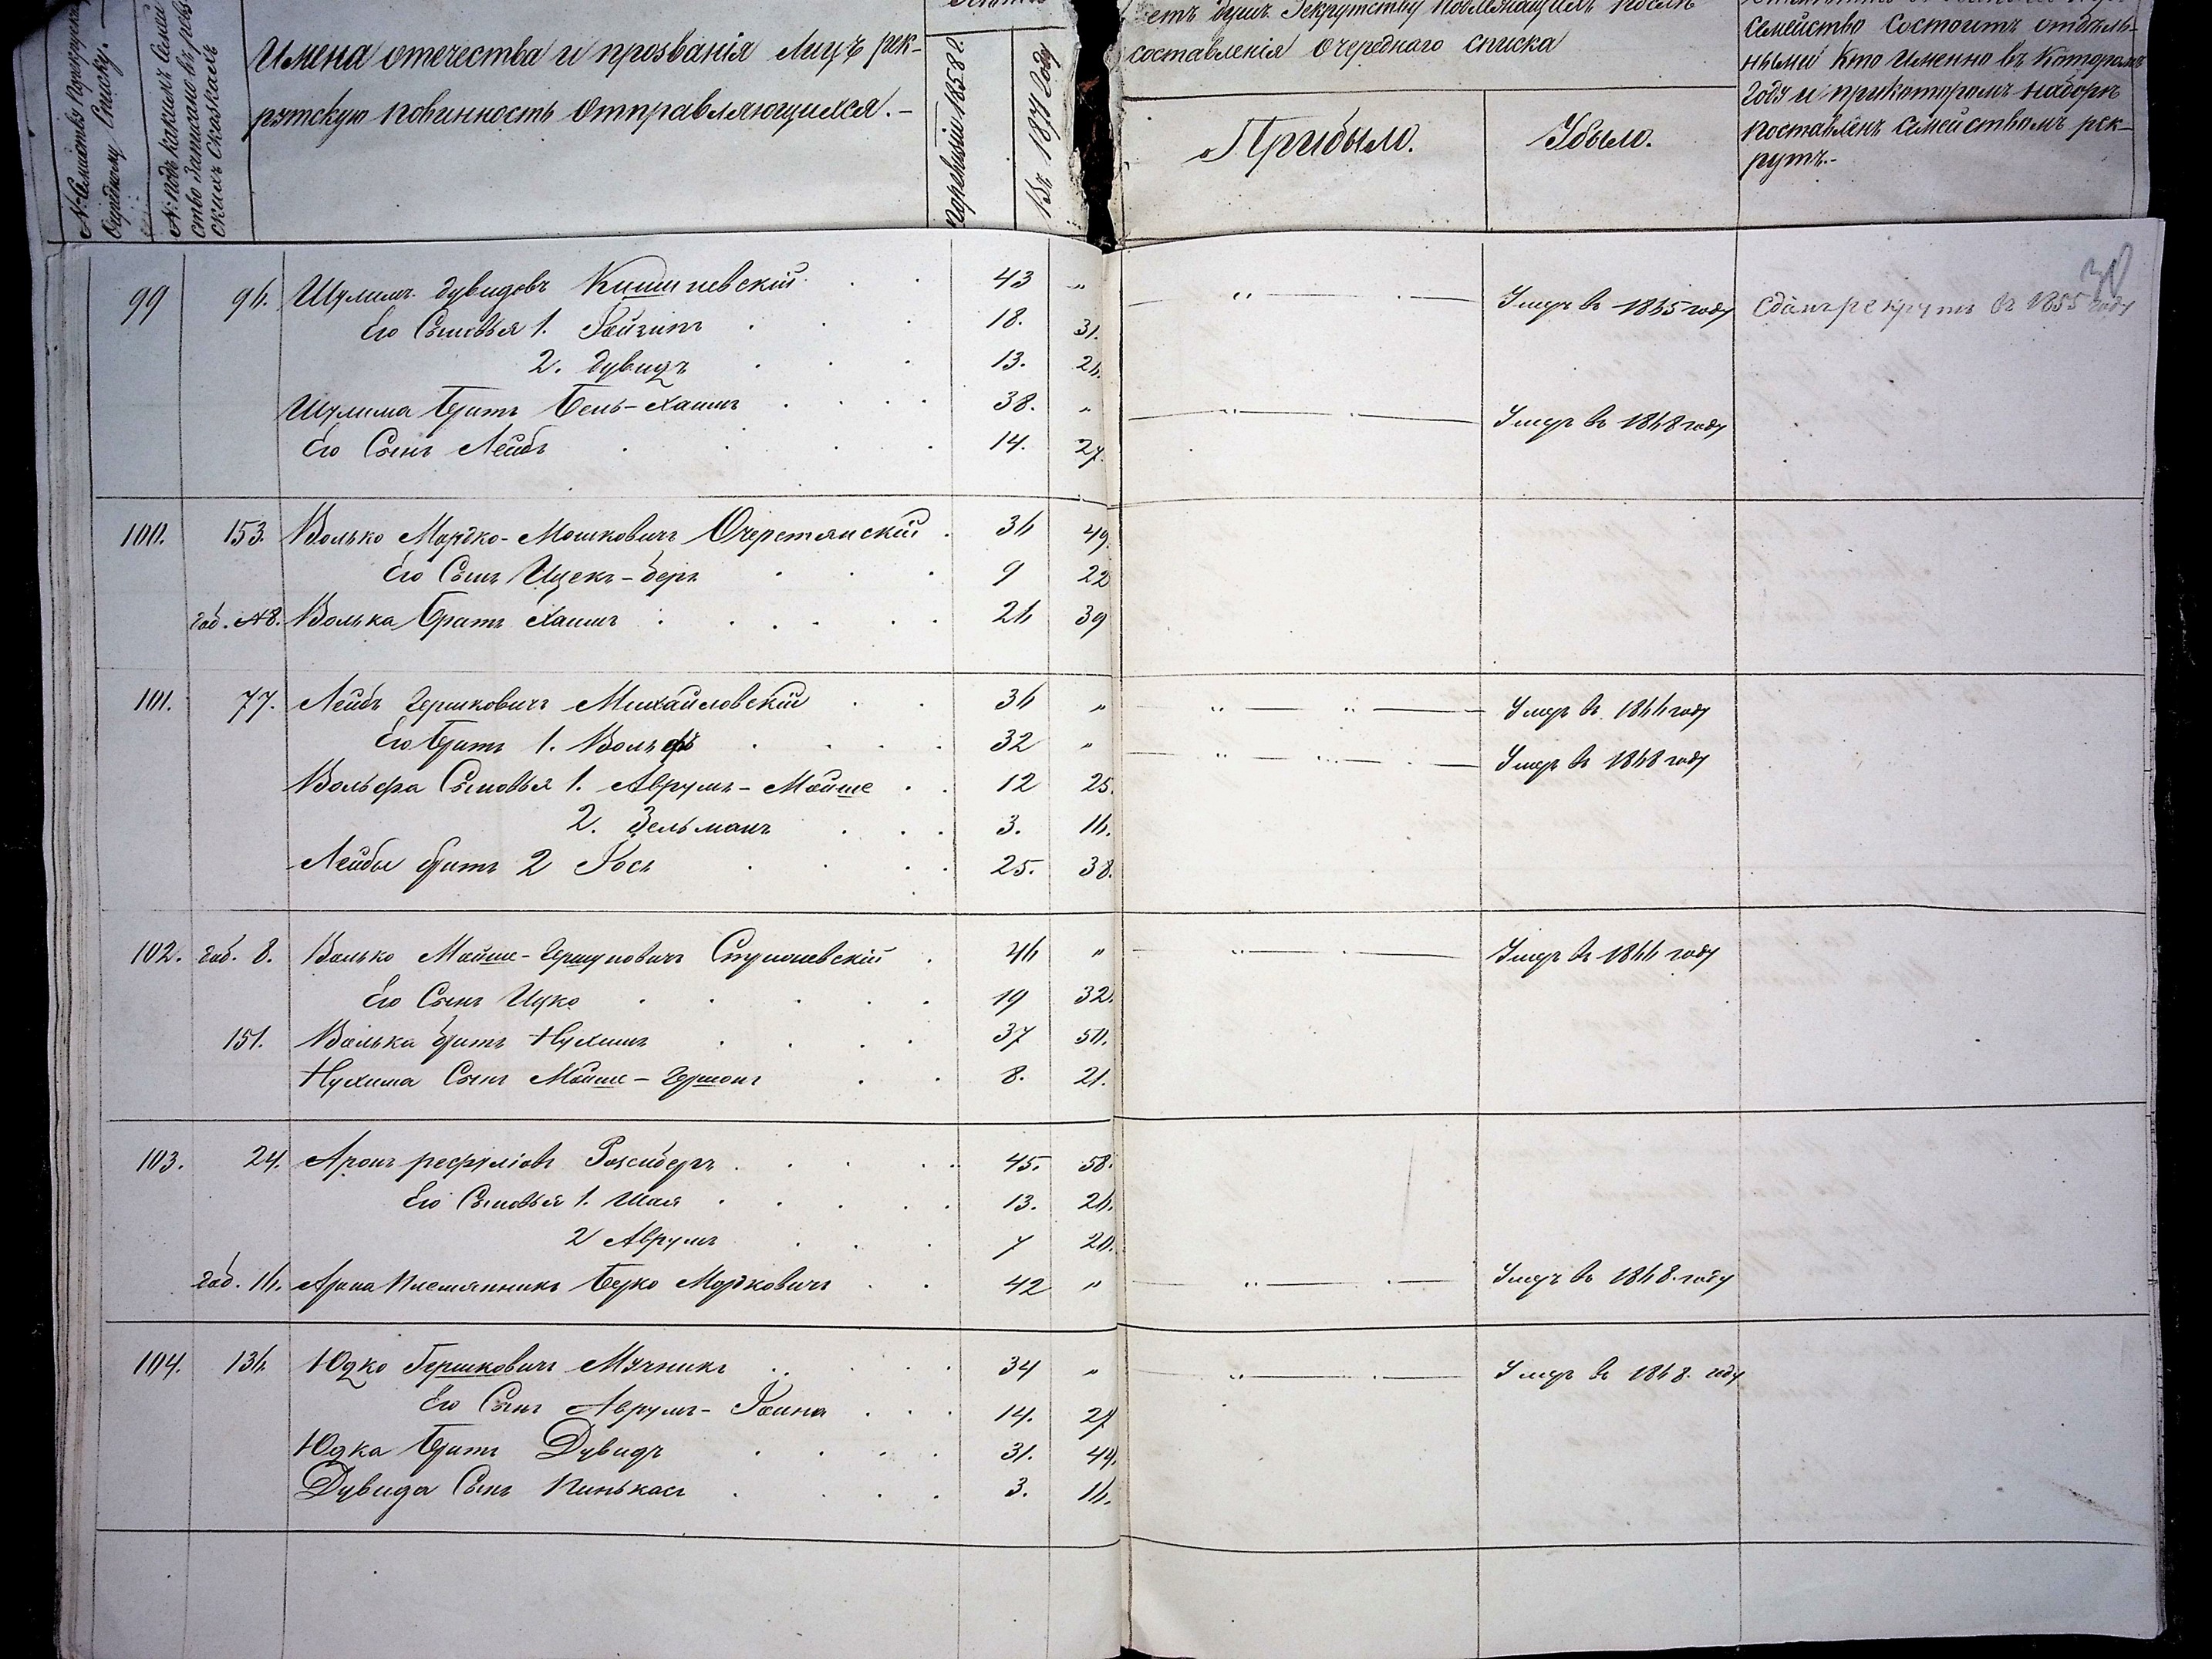 № Семейства по рекрутскому
Очередному Списку.
№ подъ какимъ Семей
ство записано въ ревиз
скихъ Сказкахъ
Имена отечества и прозванія Лицъ рек-
рутскую повинность Отправляющихся.-
По ревизіи 1858 г.
Въ 1871 Году
етъ душъ Рекрутству подлежащихъ послѣ
составленія Очереднаго списка
Прибыло.
Убыло.
Семейство Состоитъ отдѣль-
нымъ Кто Именно въ Которомъ
Году и прикоторомъ наборѣ
поставленъ Семействомъ рек-
рутъ.-
99 96. Шулимъ Дувидовъ Кишиневскій 43 " " Умеръ въ 1865 году Сданъ рекрутъ въ 1855 году
Его Сыновья 1. 18. 31.
2. Дувидъ 13. 26.
Шулима братъ Бень-Хаимъ 38. " " Умеръ въ 1868 году
Его Сынъ Лейбъ 14. 27.
100. 153. Волько Мордко-Мошковичъ Очеретянскій 36 49.
Его Сынъ Ицекъ-беръ 9 22
Волька братъ Хаимъ 26 39
101. 77. Лейбъ Гершковичъ Михайловскій 36 " " " Умеръ въ 1866 году
Его братъ 1. Вольфъ 32 " " Умеръ въ 1868 году
Вольфа Сыновья 1. Аврумъ-Мойше 12 25.
2. Зельманъ 3. 16.
Лейбы братъ 2 Іосъ 25. 38.
102. доб. 8. Волько Мойше-Гершуновичъ 46 " " Умеръ въ 1866 году
Его Сынъ Ицко 19 32.
151. Волька братъ Нухимъ 37 50.
Нухима Сынъ Мойше-Гершонъ 8. 21.
103. 24. Аронъ рефуліовъ 45. 58.
Его Сыновья 1. Шая 13. 26.
2 Аврумъ 7 20.
доб. 16. Арона Племянникъ Берко Мордковичъ 42 " " Умеръ въ 1868 году
104. 136 Юдко Гершковичъ Мучникъ 34 " " Умеръ въ 1868. году
Его Сынъ Аврумъ- 14. 27
Юдка братъ Дувидъ 31. 44.
Дувида Сынъ Пинькасъ 3. 16.